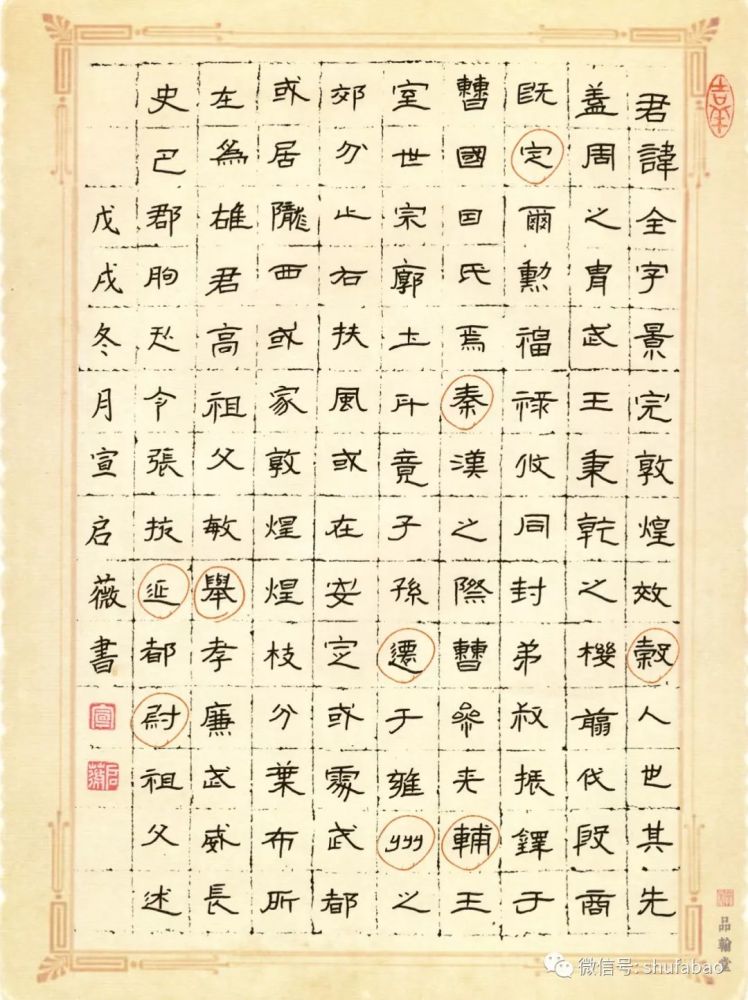 君諱全字景完敦煌效穀人世其先
蓋周之胄武王秉乾之機翦伐殷商
既定爾勳福祿攸同封弟叔振鐸于
曹國囙氏焉秦漢之際曹參夾輔王
室世宗廓土斥竟子孫遷于雍州之
郊分止右扶風或在安定或處武都
或居隴西或家敦煌煌枝分葉布所
在為雄君高祖父敏舉孝廉武威長
史巴郡朐忍令張掖延都尉祖父述
戊戌冬月宣启薇書
宣
启薇
吉羊
品翰堂
微信号: shufabao